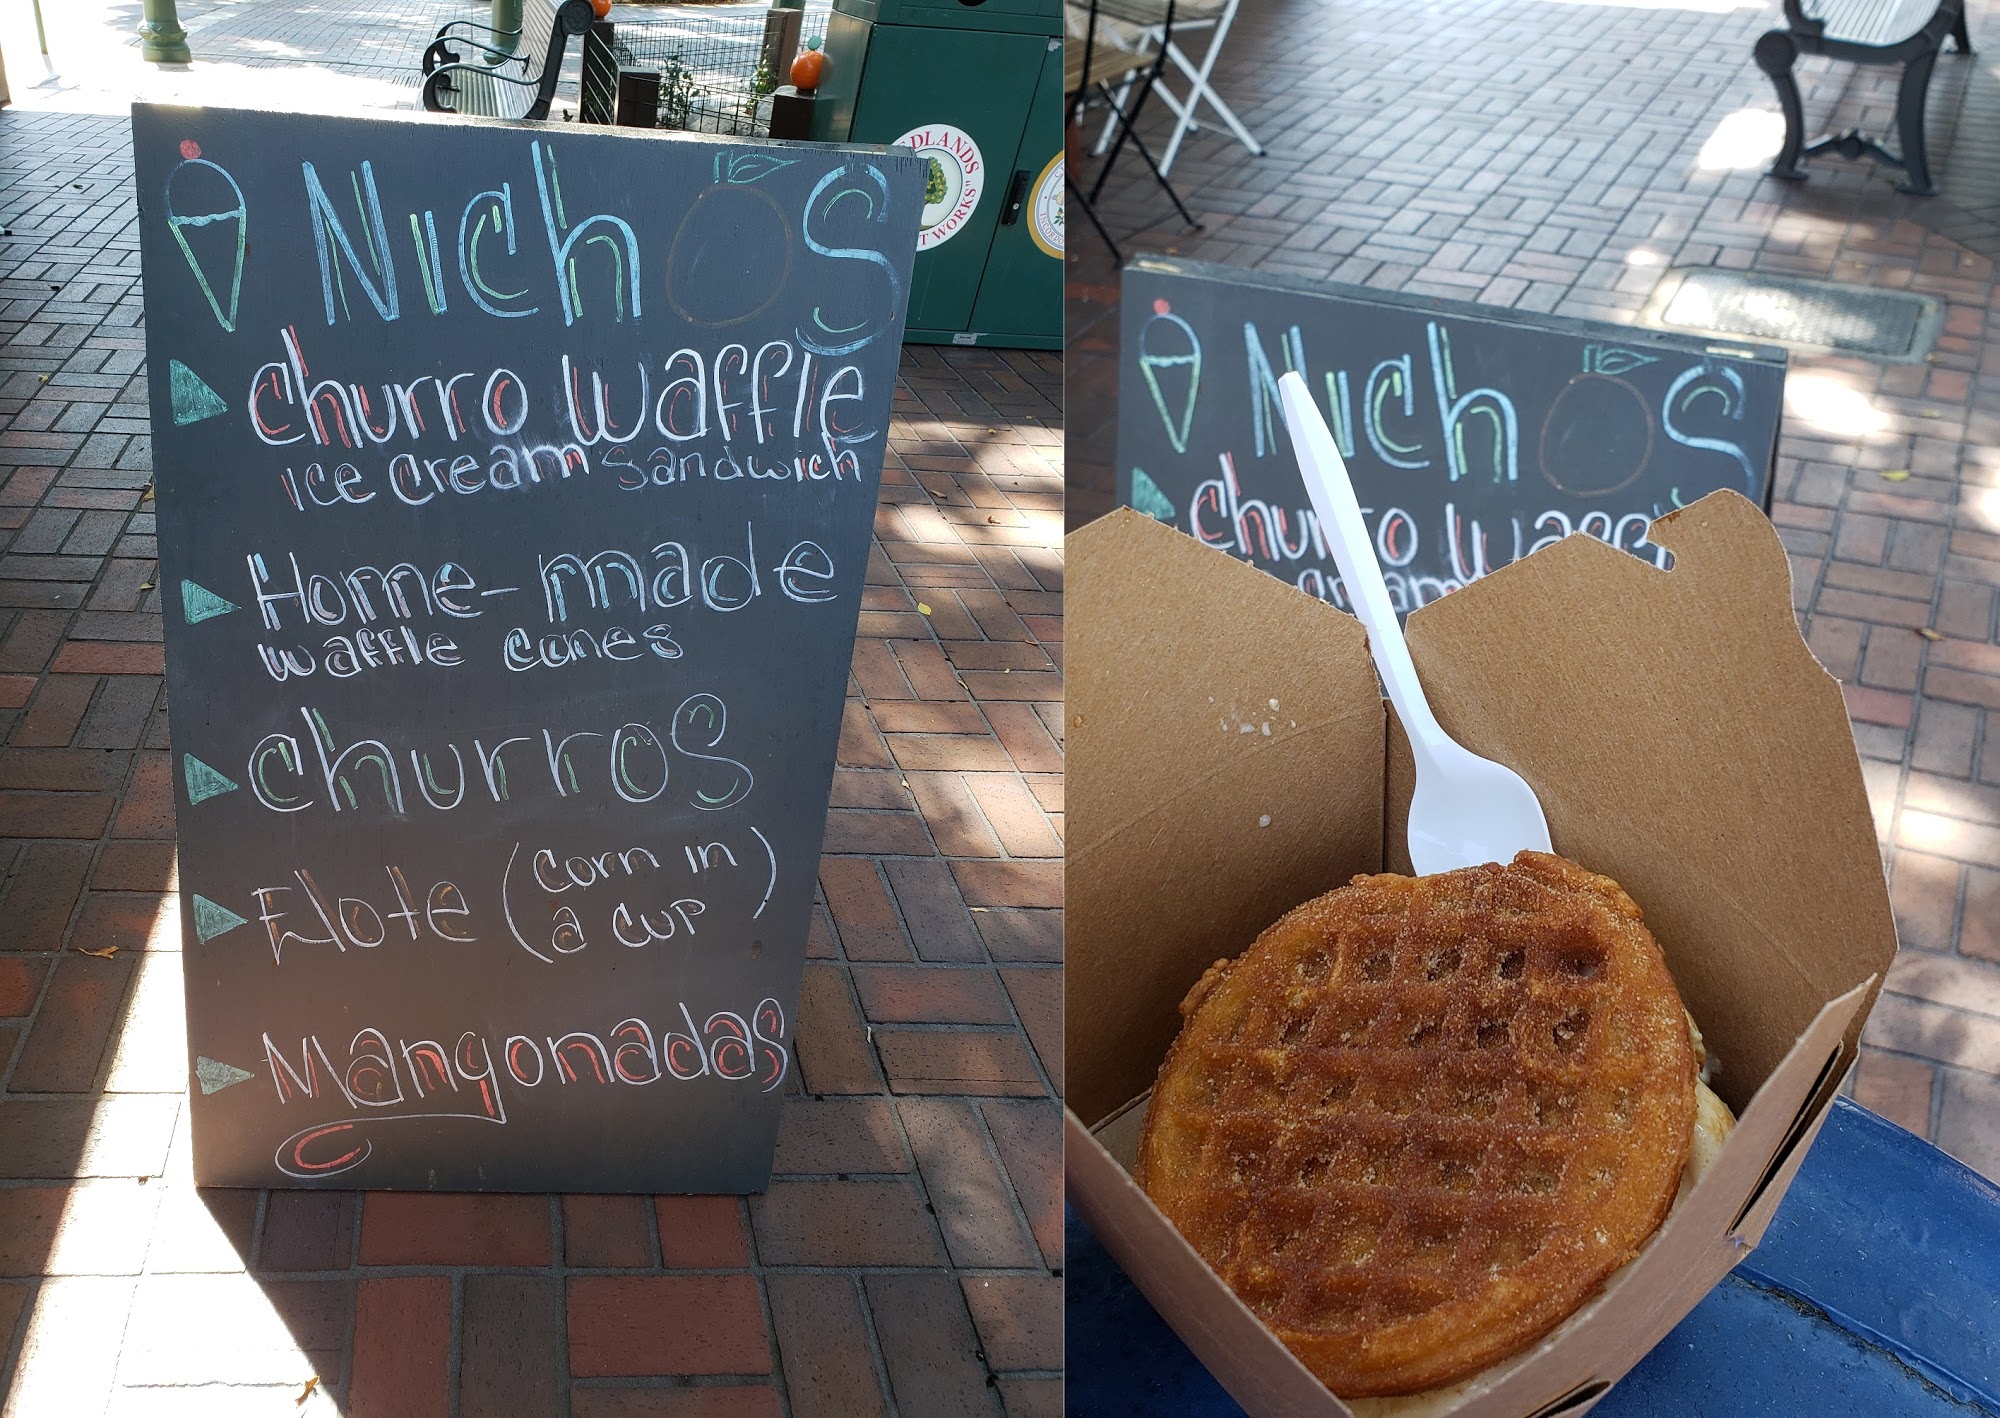 NichOS
Churro Waffle
ice cream Sandwich
Home-made
waffle cones
Churros
Elote (corn in
a cup)
Mangonadas
DLANDS
T WORKS"
NichOS
Churro Waff
cream